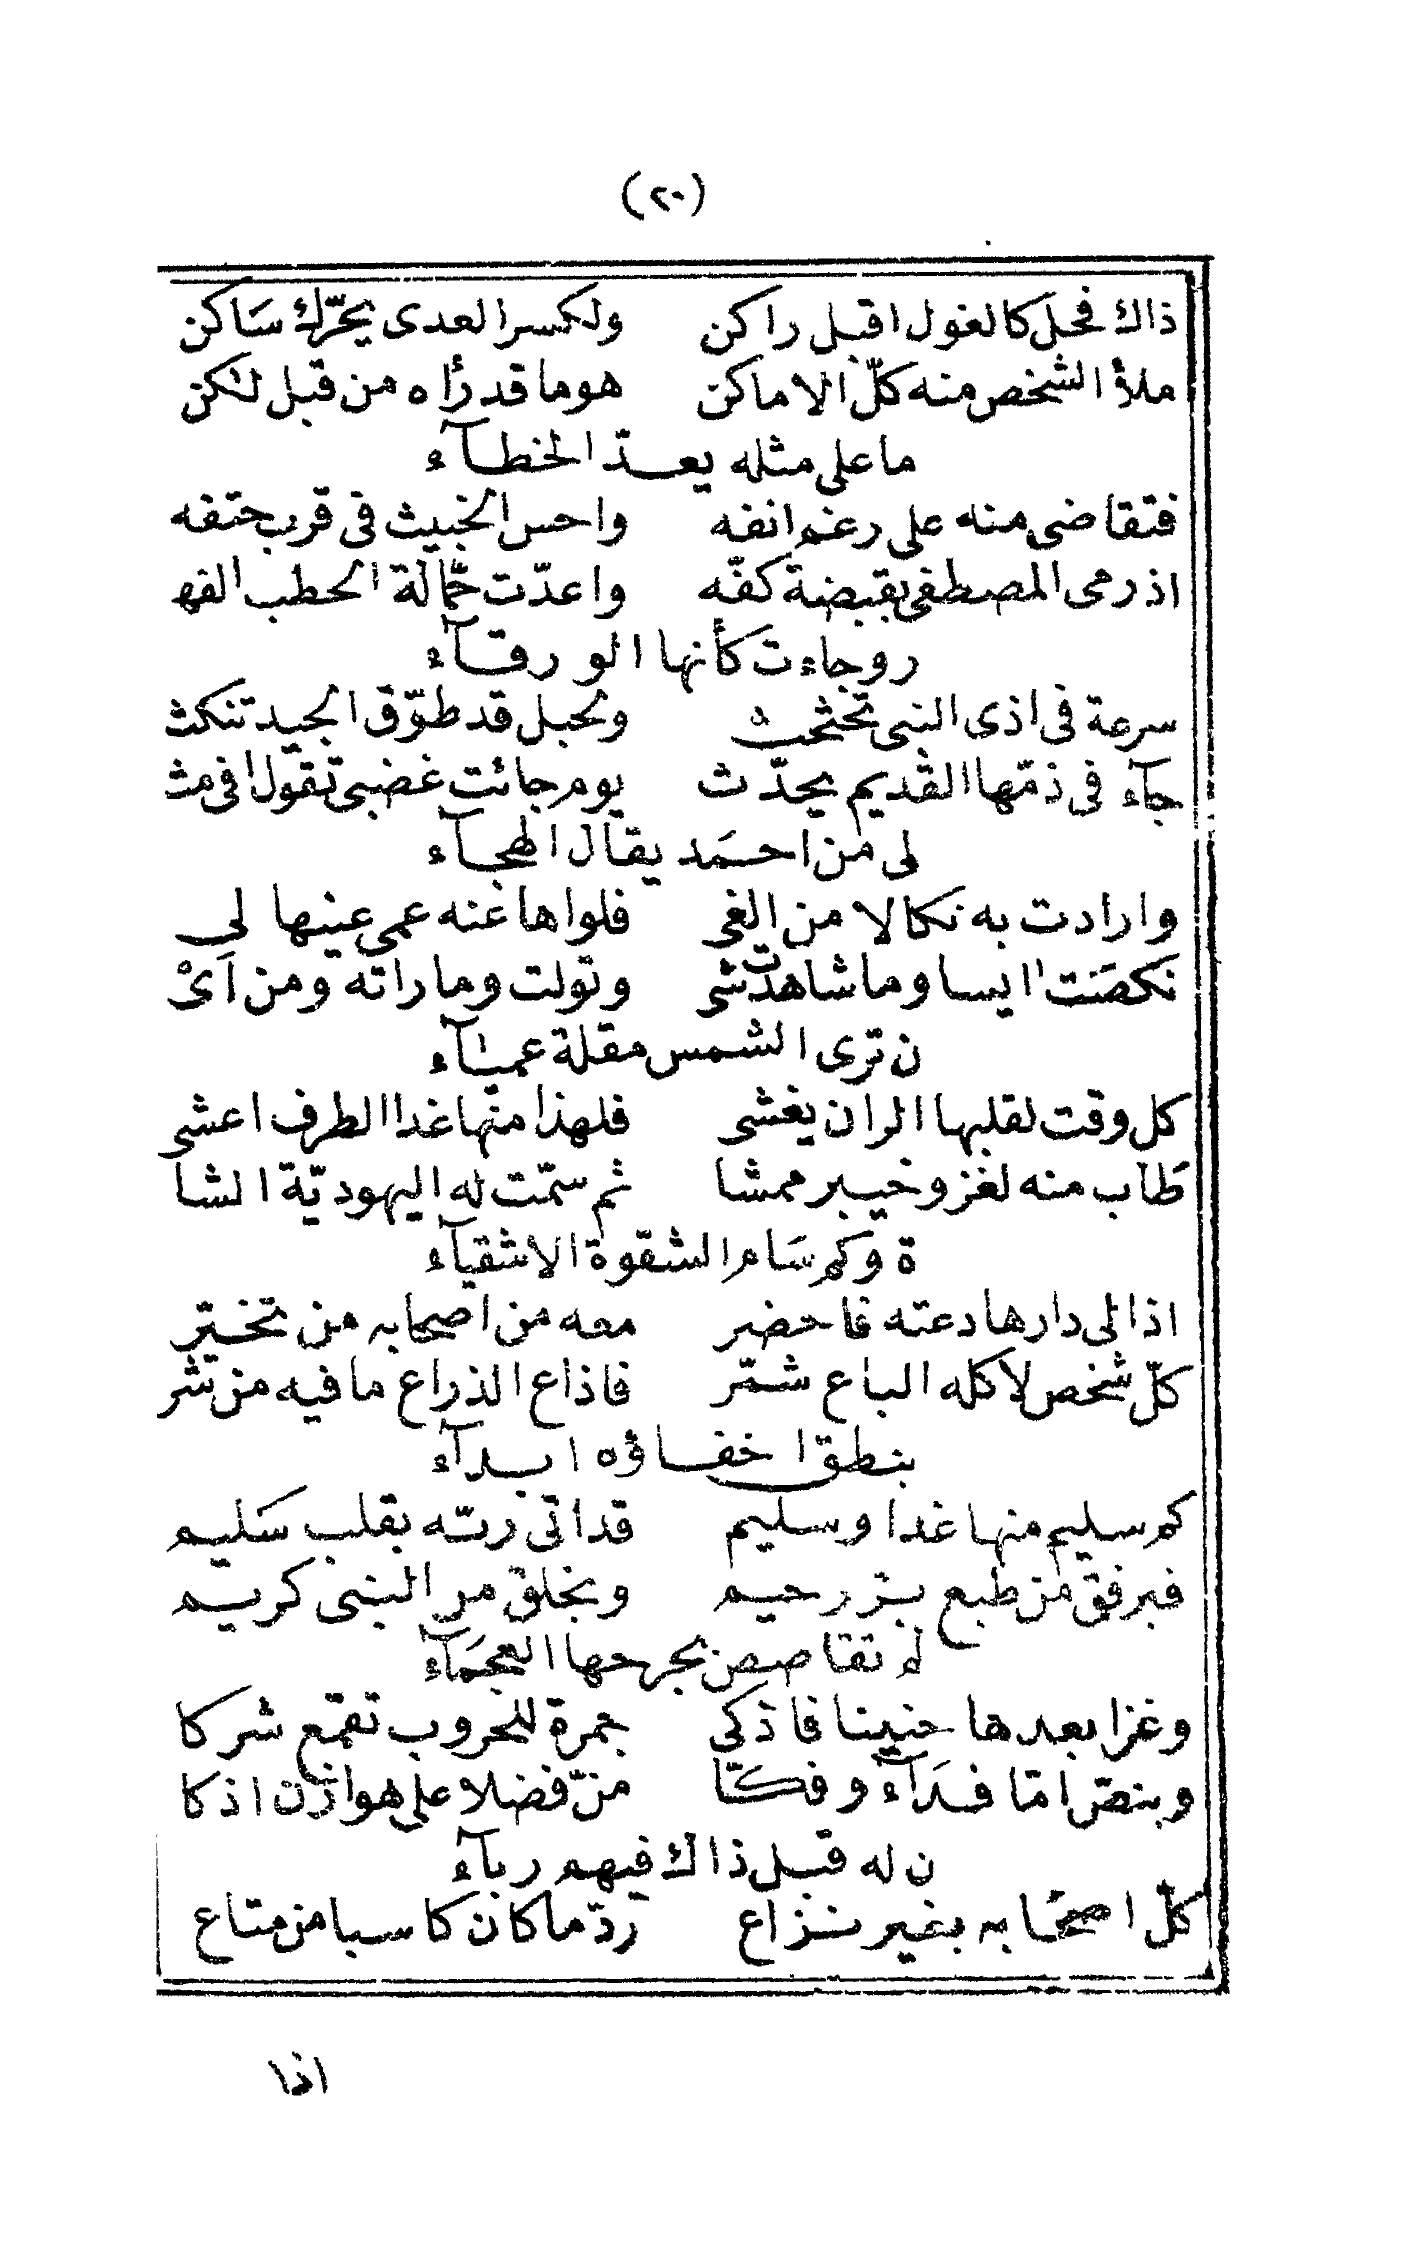 (٢٠)
ذاك فحل كالغول اقبل راكن ولكسر العدى يحرّك سَاكن
ملأ الشخص منه كلّ الاماكن هو ما قد رأاه من قبل لٰكن
ما على مثله يعدّ الخطآء
فتقاضى منه على رغم انفه واحس الخبيث في قرب حتفه
اذ رمى المصطفى بقبضة كفّه واعدّت حمّالة الحطب الفه
ر وجاءت كأنها الورقآء
سرعة في اذى النبى تحثحث ولحبل قد طوّق الجيد تنكث
جآء في ذمّها القديم يحدّث يوم جائت غضبى تقول افى مث
لى من احمَد يقال الهجآء
وارادت به نكالا من الغى فلواها عنه عمى عينها لى
نكصَت ايسا وما شاهدت شى وتولت وما راته ومن اَىْ
ن ترى الشمس مقلة عميآء
كل وقت لقلبها الران يغشى فلهذا منها غدا الطرف اعشى
طَاب منه لغزو خيبر ممشا ثم سمّت له اليهوديّة الشا
ة وكم سَام الشقوة الاشقيآء
اذ الى دارها دعته فاحضر معه من اصحابه من تخيّر
كلّ شخص لاكله الباع شمّر فاذاع الذراع ما فيه من شر
بنطق اخفاؤه ابدآء
كم سليم منها غدا وسليم قد اتى ربّه بقلب سَليم
فبرفق من طبع برّ رحيم وبخلق من النبى كريم
لم تقاصص بجرحها العجمَآء
وغزا بعدها حنينا فاذكى جمرة للحروب تقمّع شركا
وبنصّ امّا فدَآء وفكّا منّ فضلا على هوازن اذ كا
ن له قبل ذاك فيهم ربآء
كلّ اصحابه بغير نزاع ردّ ما كان كاسبا من متاع
اذا